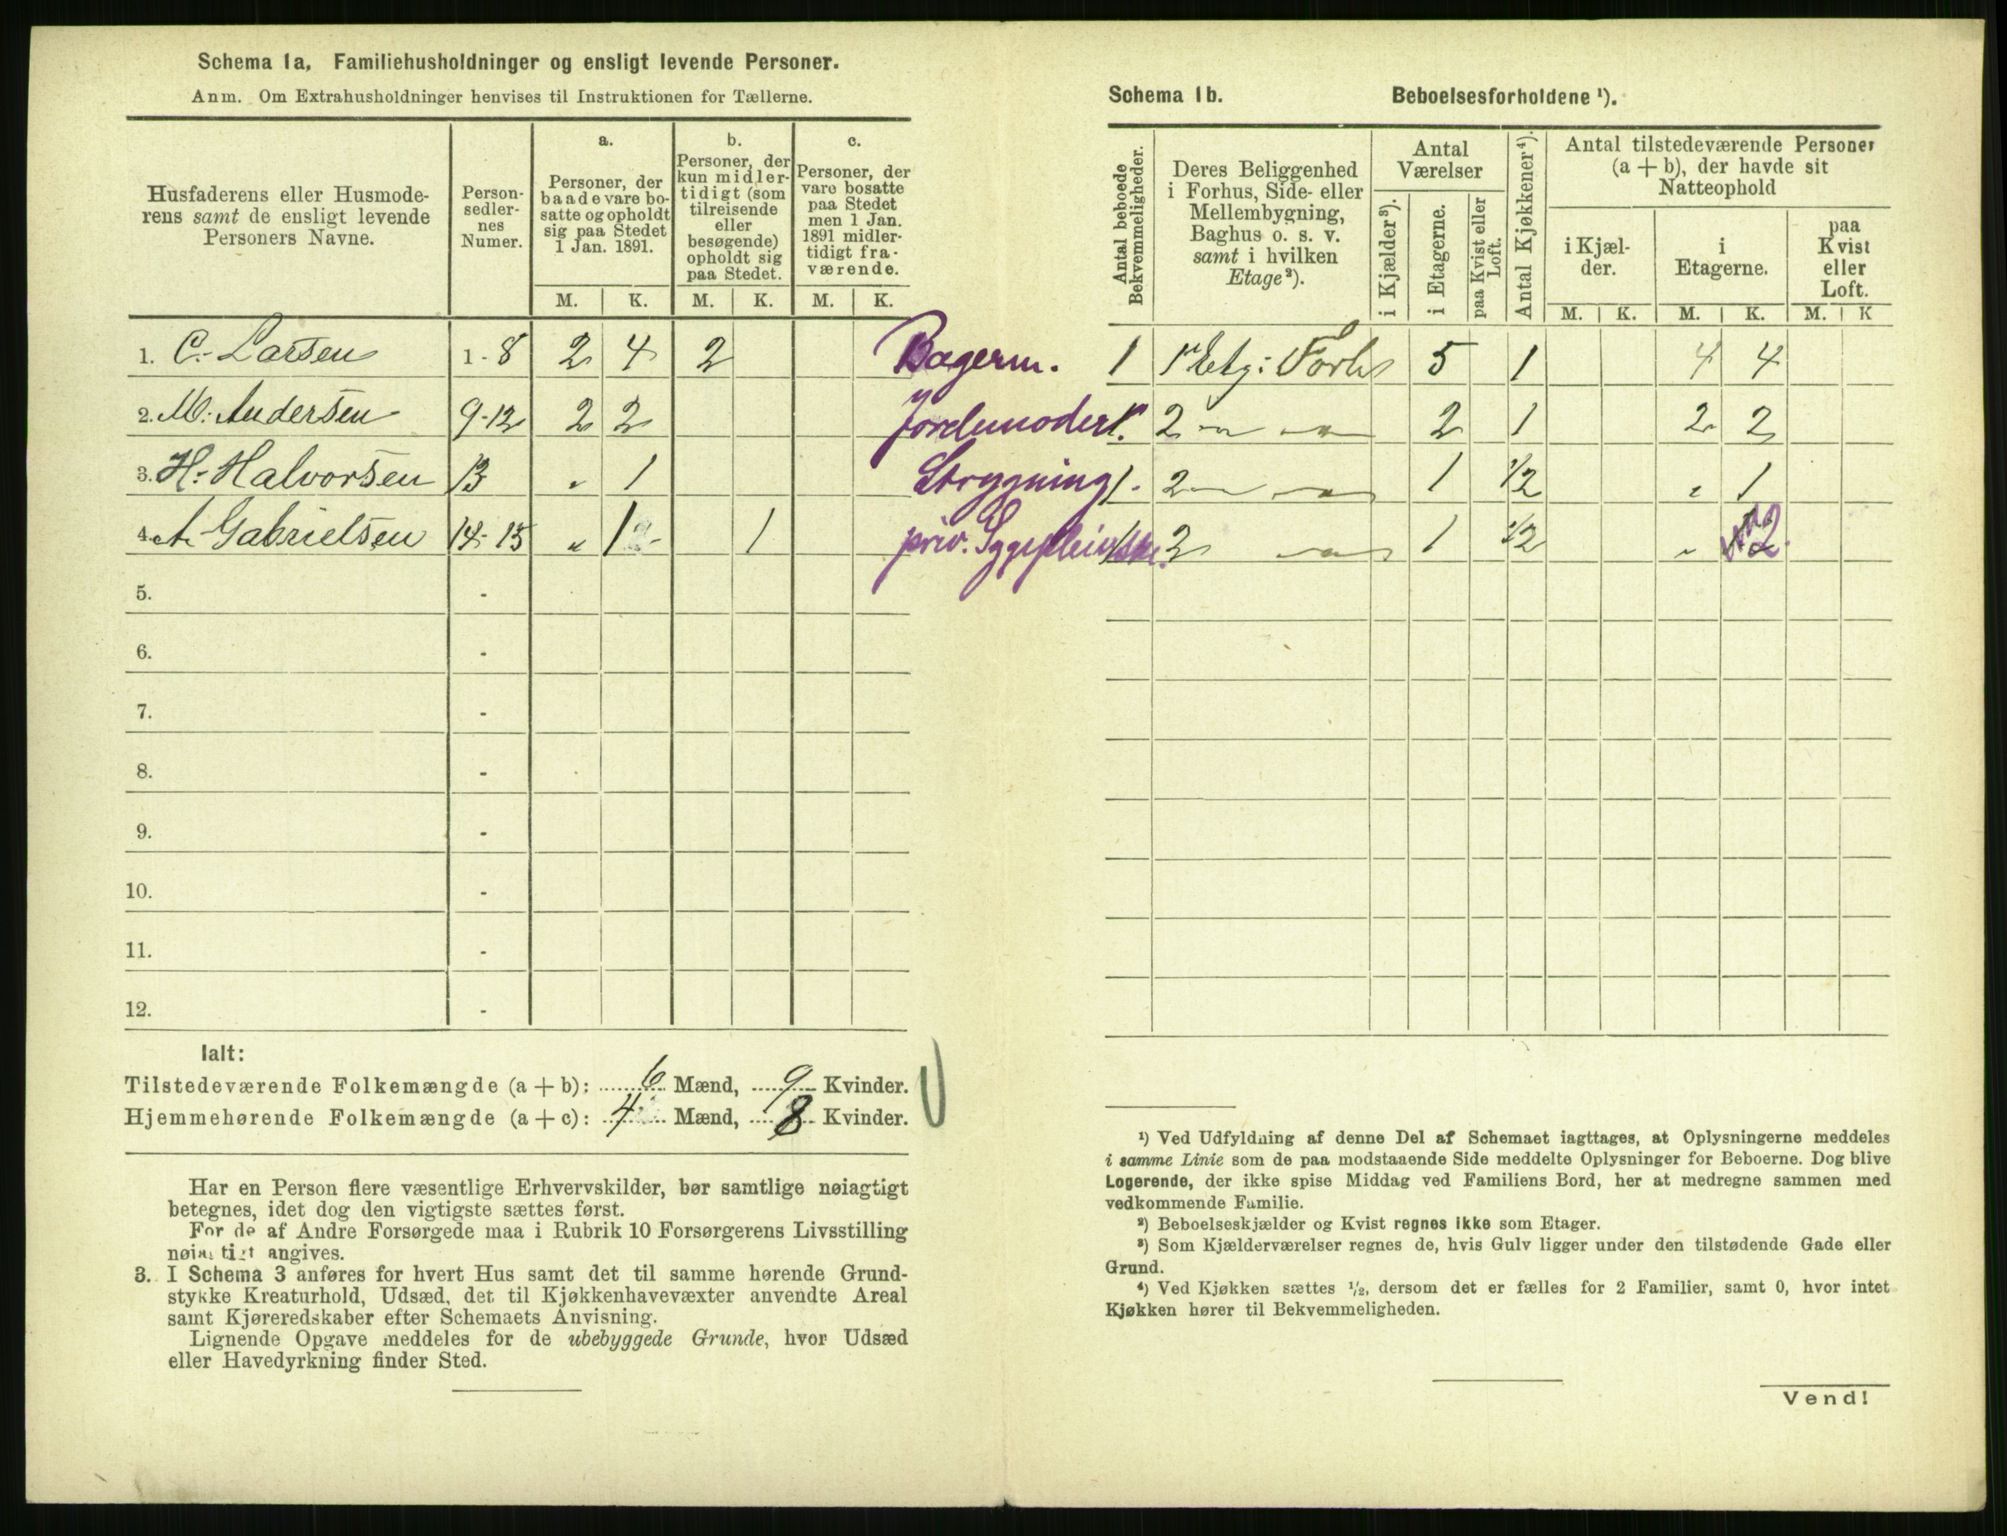 Schema 1a. Familiehusholdninger og ensligt levende Personer.
Anm. Om Extrahusholdninger henvises til Instruktionen for Tællerne.
Husfaderens eller Husmode-
rens samt de ensligt levende
Personers Navne.
Person-
sedler-
nes
Numer.
a.
Personer, der
baade vare bo-
satte og opholdt
sig paa Stedet
1 Jan. 1891.
b.
Personer, der
kun midler-
tidigt (som
tilreisende
eller
besøgende)
opholdt sig
paa Stedet.
c.
Personer, der
vare bosatte
paa Stedet
men 1 Jan.
1891 midler-
tidigt fra-
værende.
M. K. M. K. M. K.
1. C. Larsen 1-8 2 4 2 Bagerm.
2. M. Andersen 9-12 2 2 Jordemoder
3. H. Halvorsen 13 " 1 Strygning
4. A. Gabrielsen 14-15 " 1 1 priv. Sygepleierske.
5. -
6. -
7. -
8. -
9. -
10. -
11. -
12. -
Ialt:
Tilstedeværende Folkemængde (a + b): 6 Mænd, 9 Kvinder.
Hjemmehørende Folkemængde (a + c): 4 Mænd, 8 Kvinder.
Har en Person flere væsentlige Erhvervskilder, bør samtlige nøiagtigt
betegnes, idet dog den vigtigste sættes først.
For de af Andre Forsørgede maa i Rubrik 10 Forsørgerens Livsstilling
nøiagtigt angives.
3. I Schema 3 anføres for hvert Hus samt det til samme hørende Grund-
stykke Kreaturhold, Udsæd, det til Kjøkkenhavevæxter anvendte Areal
samt Kjøreredskaber efter Schemaets Anvisning.
Lignende Opgave meddeles for de ubebyggede Grunde, hvor Udsæd
eller Havedyrkning finder Sted.
Schema 1b. Beboelsesforholdene ¹).
Antal beboede
Bekvemmeligheder.
Deres Beliggenhed
i Forhus, Side- eller
Mellembygning,
Baghus o. s. v.
samt i hvilken
Etage²).
Antal
Værelser
i Kjælder³).
i Etagerne.
paa Kvist eller
Loft.
Antal Kjøkkener⁴).
Antal tilstedeværende Personer
(a + b), der havde sit
Natteophold
i Kjæl-
der.
i
Etagerne.
paa
Kvist
eller
Loft.
M. K. M. K. M. K
1 1ste Etg: Forh 5 1 4 4
1. 2 — — 2 1 2 2
1. 2 — — 1 1/2 " 1
1 2 — 1 1/2 " 2.
¹) Ved Udfyldning af denne Del af Schemaet iagttages, at Oplysningerne meddeles
i samme Linie som de paa modstaaende Side meddelte Oplysninger for Beboerne. Dog blive
Logerende, der ikke spise Middag ved Familiens Bord, her at medregne sammen med
vedkommende Familie.
²) Beboelseskjælder og Kvist regnes ikke som Etager.
³) Som Kjælderværelser regnes de, hvis Gulv ligger under den tilstødende Gade eller
Grund.
⁴) Ved Kjøkken sættes 1/2, dersom det er fælles for 2 Familier, samt 0, hvor intet
Kjøkken hører til Bekvemmeligheden.
Vend!